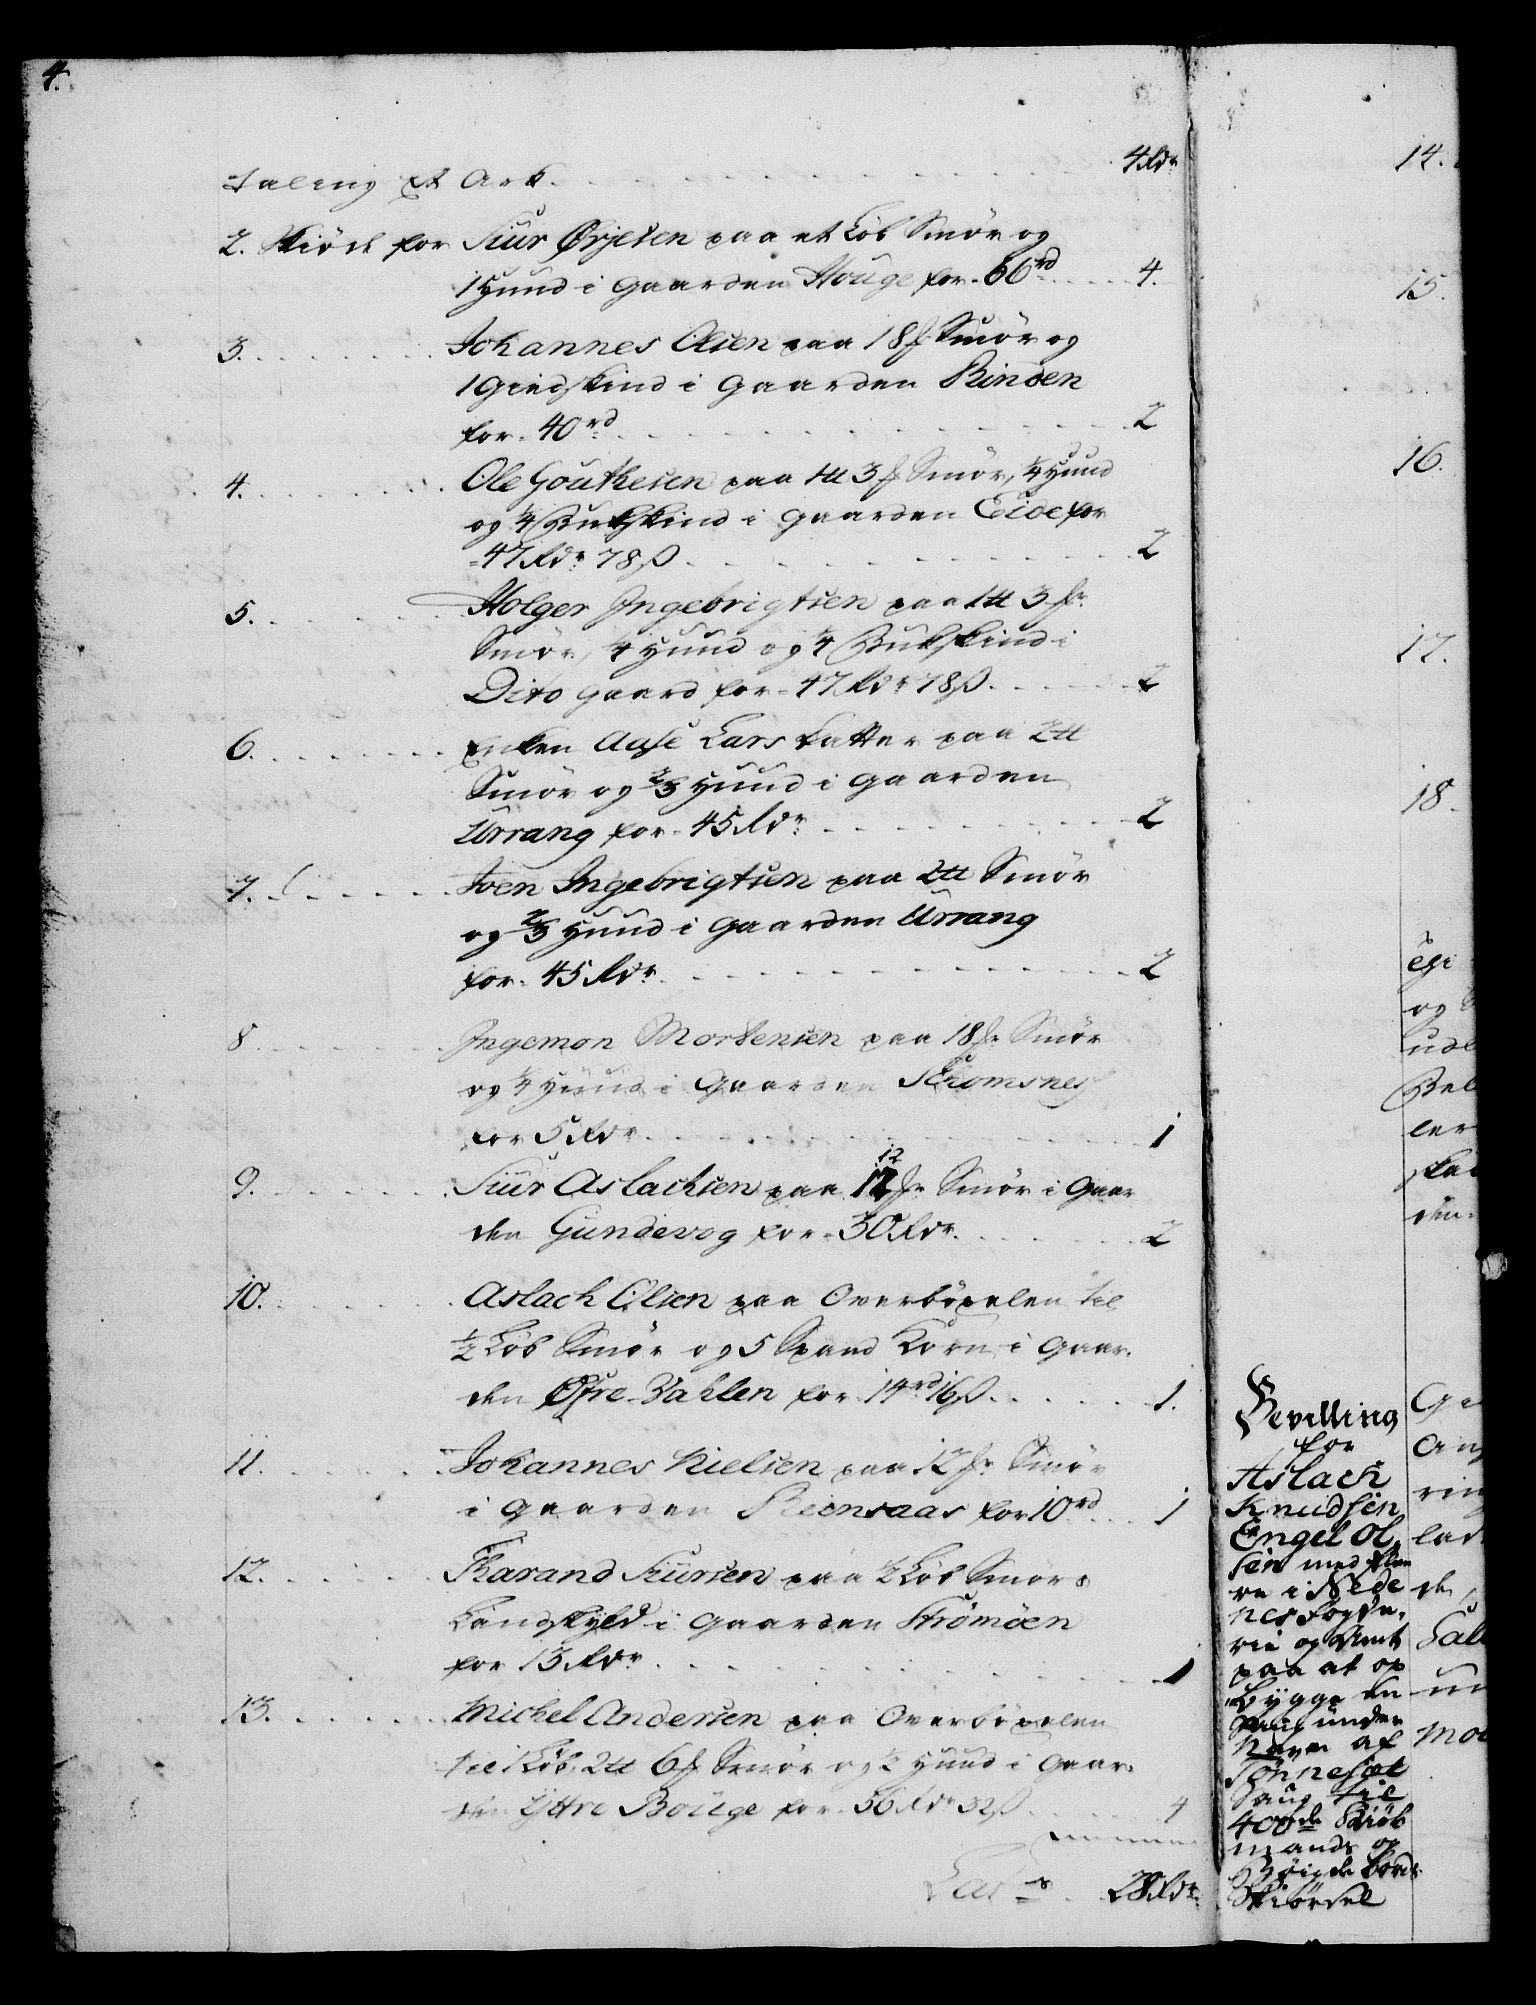 4.
taling et Ark. 4 Rdr
2. Skiöde for Siur Ørjesen paa et Løb Smør og
1 Huud i Gaarden Houge for 66 rd 4.
3. Johannes Olsen paa 18 f Smør og
1 Giedskind i Gaarden Rinden
for 40 rd 2
4. Ole Gouthesen paa 1 tt 3 f Smør, 1/4 Huud
og 1/4 Bukskind i Gaarden Eide for
47 Rdr 78 ß 2
5. Holger Ingebrigtsen paa 1 tt 3 fr
Smør, 1/4 Huud og 1/4 Bukskind i
Dito Gaard for 47 Rdr 78 ß 2
6. Enken Aase Lars Datter paa 2 tt
Smør og 2/3 Huud i Gaarden
Urrang for 45 Rdr 2
7. Joen Ingebrigtsen paa 2 tt Smør
og 2/3 Huud i Gaarden Urrang
for 45 Rdr 2
8. Ingemon Mortensen paa 18 fr Smør
og 1/4 Huud i Gaarden Strømsnes
for 5 Rdr 1
12
9. Siur Aslachsen paa 12 fr Smør i Gaar
den Gundevog for 30 Rdr. 2
10. Aslach Olsen paa Overböxelen til
1/2 Løb Smør og 5 Spand Korn i Gaar-
den Øfre Dahlen for 14 rd 16 ß. 1.
11. Johannes Nielsen paa 12 fr Smør
i Gaarden Reensaas for 10 rd 1
12. Tharand Siursen paa 1/2 Løb Smørs
Landskyld i Gaarden Strømøen
for 13 Rdr 1
13. Michel Andersen paa Overböxelen
til 1 Løb 2 tt 6 f Smør og 1/2 Huud i Gaar-
den Yttre Bouge for 56 Rdr 32 ß 4
Lat 28 Rdr
14.
15.
16.
17.
18.
og
den
Bevilling
for
Aslach
Knudsen
Engel Ol,
sen med flee
re i Nede
nes Fogde,
rie og Amt
paa at op
bygge en
Saug under
Navn af
Tønnesøl
Saug til
400de Kiøb
mands og
Bøigde Bords
Skiørsel